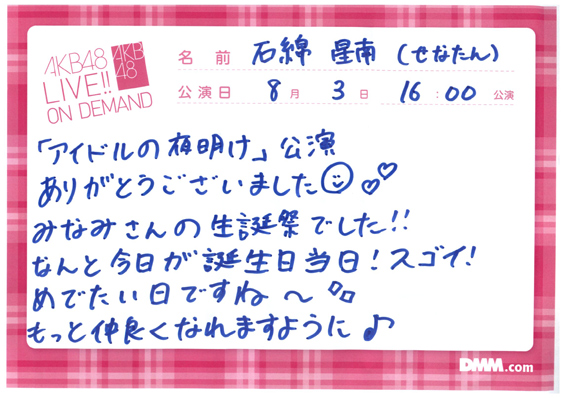 AKB48
LIVE!!
ON DEMAND
AKB
48
名前 石綿 星南 (せなたん)
公演日 8月 3日 16:00 公演
「アイドルの夜明け」公演
ありがとうございました
みなみさんの生誕祭でした!!
なんと今日が誕生日当日!スゴイ!
めでたい日ですね〜
もっと仲良くなれますように♪
DMM.com